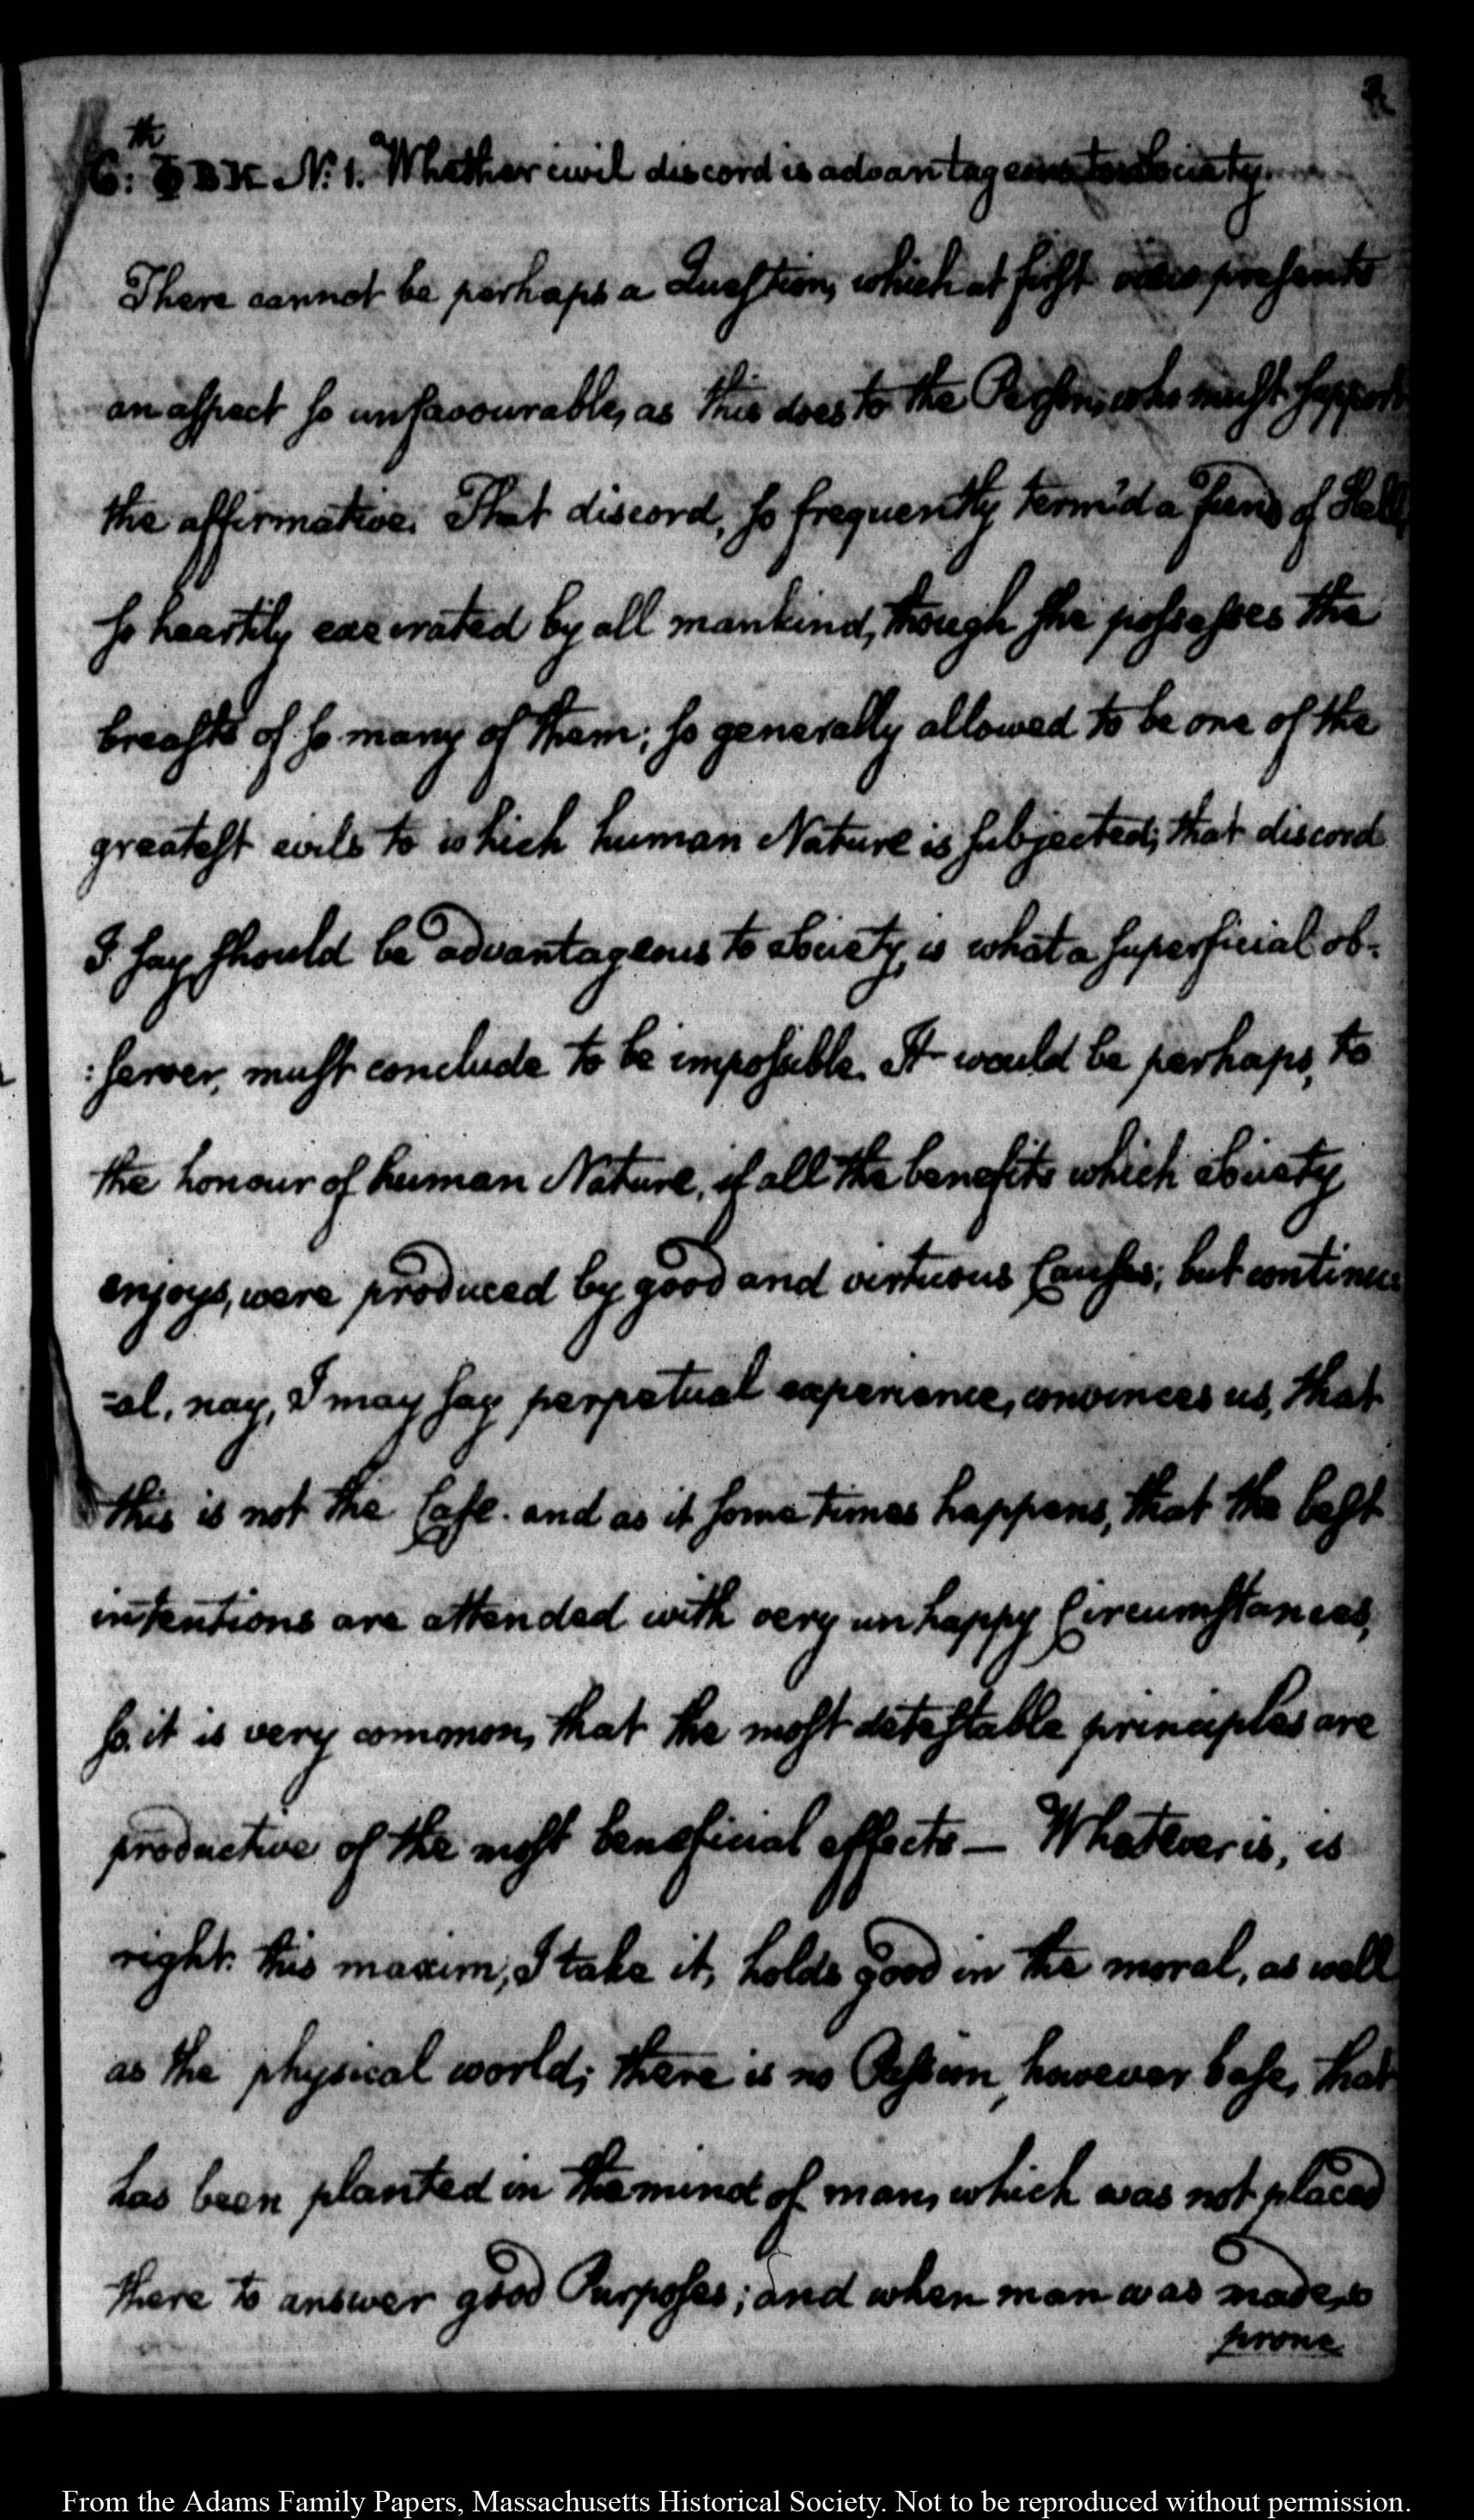 6.th ΦBK N:1. Whether civil discord is advantageous to Society.
There cannot be perhaps a Question, which at first view presents
an aspect so unfavourable, as this does to the Person, who must support
the affirmative. That discord, so frequently term'd a Fiend of Hell,
so heartily execrated by all mankind, though she possesses the
breasts of so many of them; so generally allowed to be one of the
greatest evils to which human Nature is subjected; that discord
I say, should be advantageous to Society, is what a superficial ob-
:server, must conclude to be impossible. It would be perhaps, to
the honour of human Nature, if all the benefits which Society
enjoys, were produced by good and virtuous Causes; but continu-
-al, nay, I may say perpetual experience, convinces us, that
this is not the Case. and as it sometimes happens, that the best
intentions are attended with very unhappy Circumstances,
so it is very common, that the most detestable principles are
productive of the most beneficial effects — Whatever is, is
right. this maxim, I take it, holds good in the moral, as well
as the physical world; there is no Passion, however base, that
has been planted in the mind of man, which was not placed
there to answer good Purposes; and when man was made so
prone
From the Adams Family Papers, Massachusetts Historical Society. Not to be reproduced without permission.